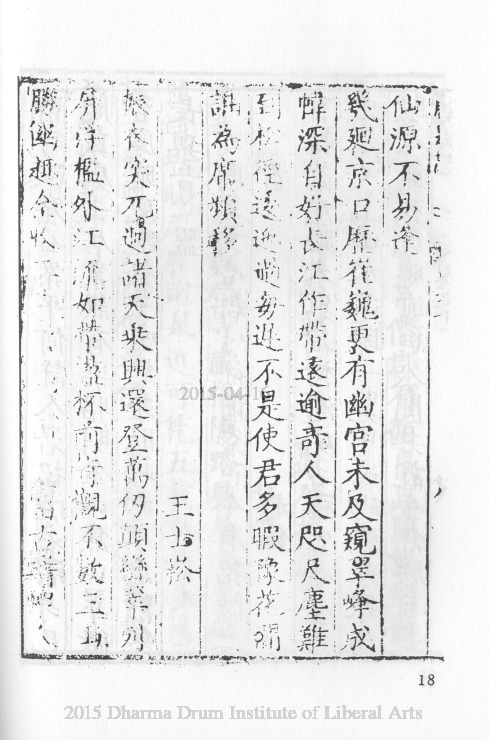 仙源不易逢
幾廻京口歷崔巍更有幽宮未及窺翠峰成
幃深自好長江作帶遠逾奇人天咫尺塵難
到松徑逶迤過每遲不是使君多暇豫花間
詎為席頻移
王士崧
振衣突兀過諸天乘興還登萬仞顛翠列
屏浮檻外江流如帶盡杯前奇觀不數三山
勝幽趣全收
18
2015-04-1
2015 Dharma Drum Institute of Liberal Arts